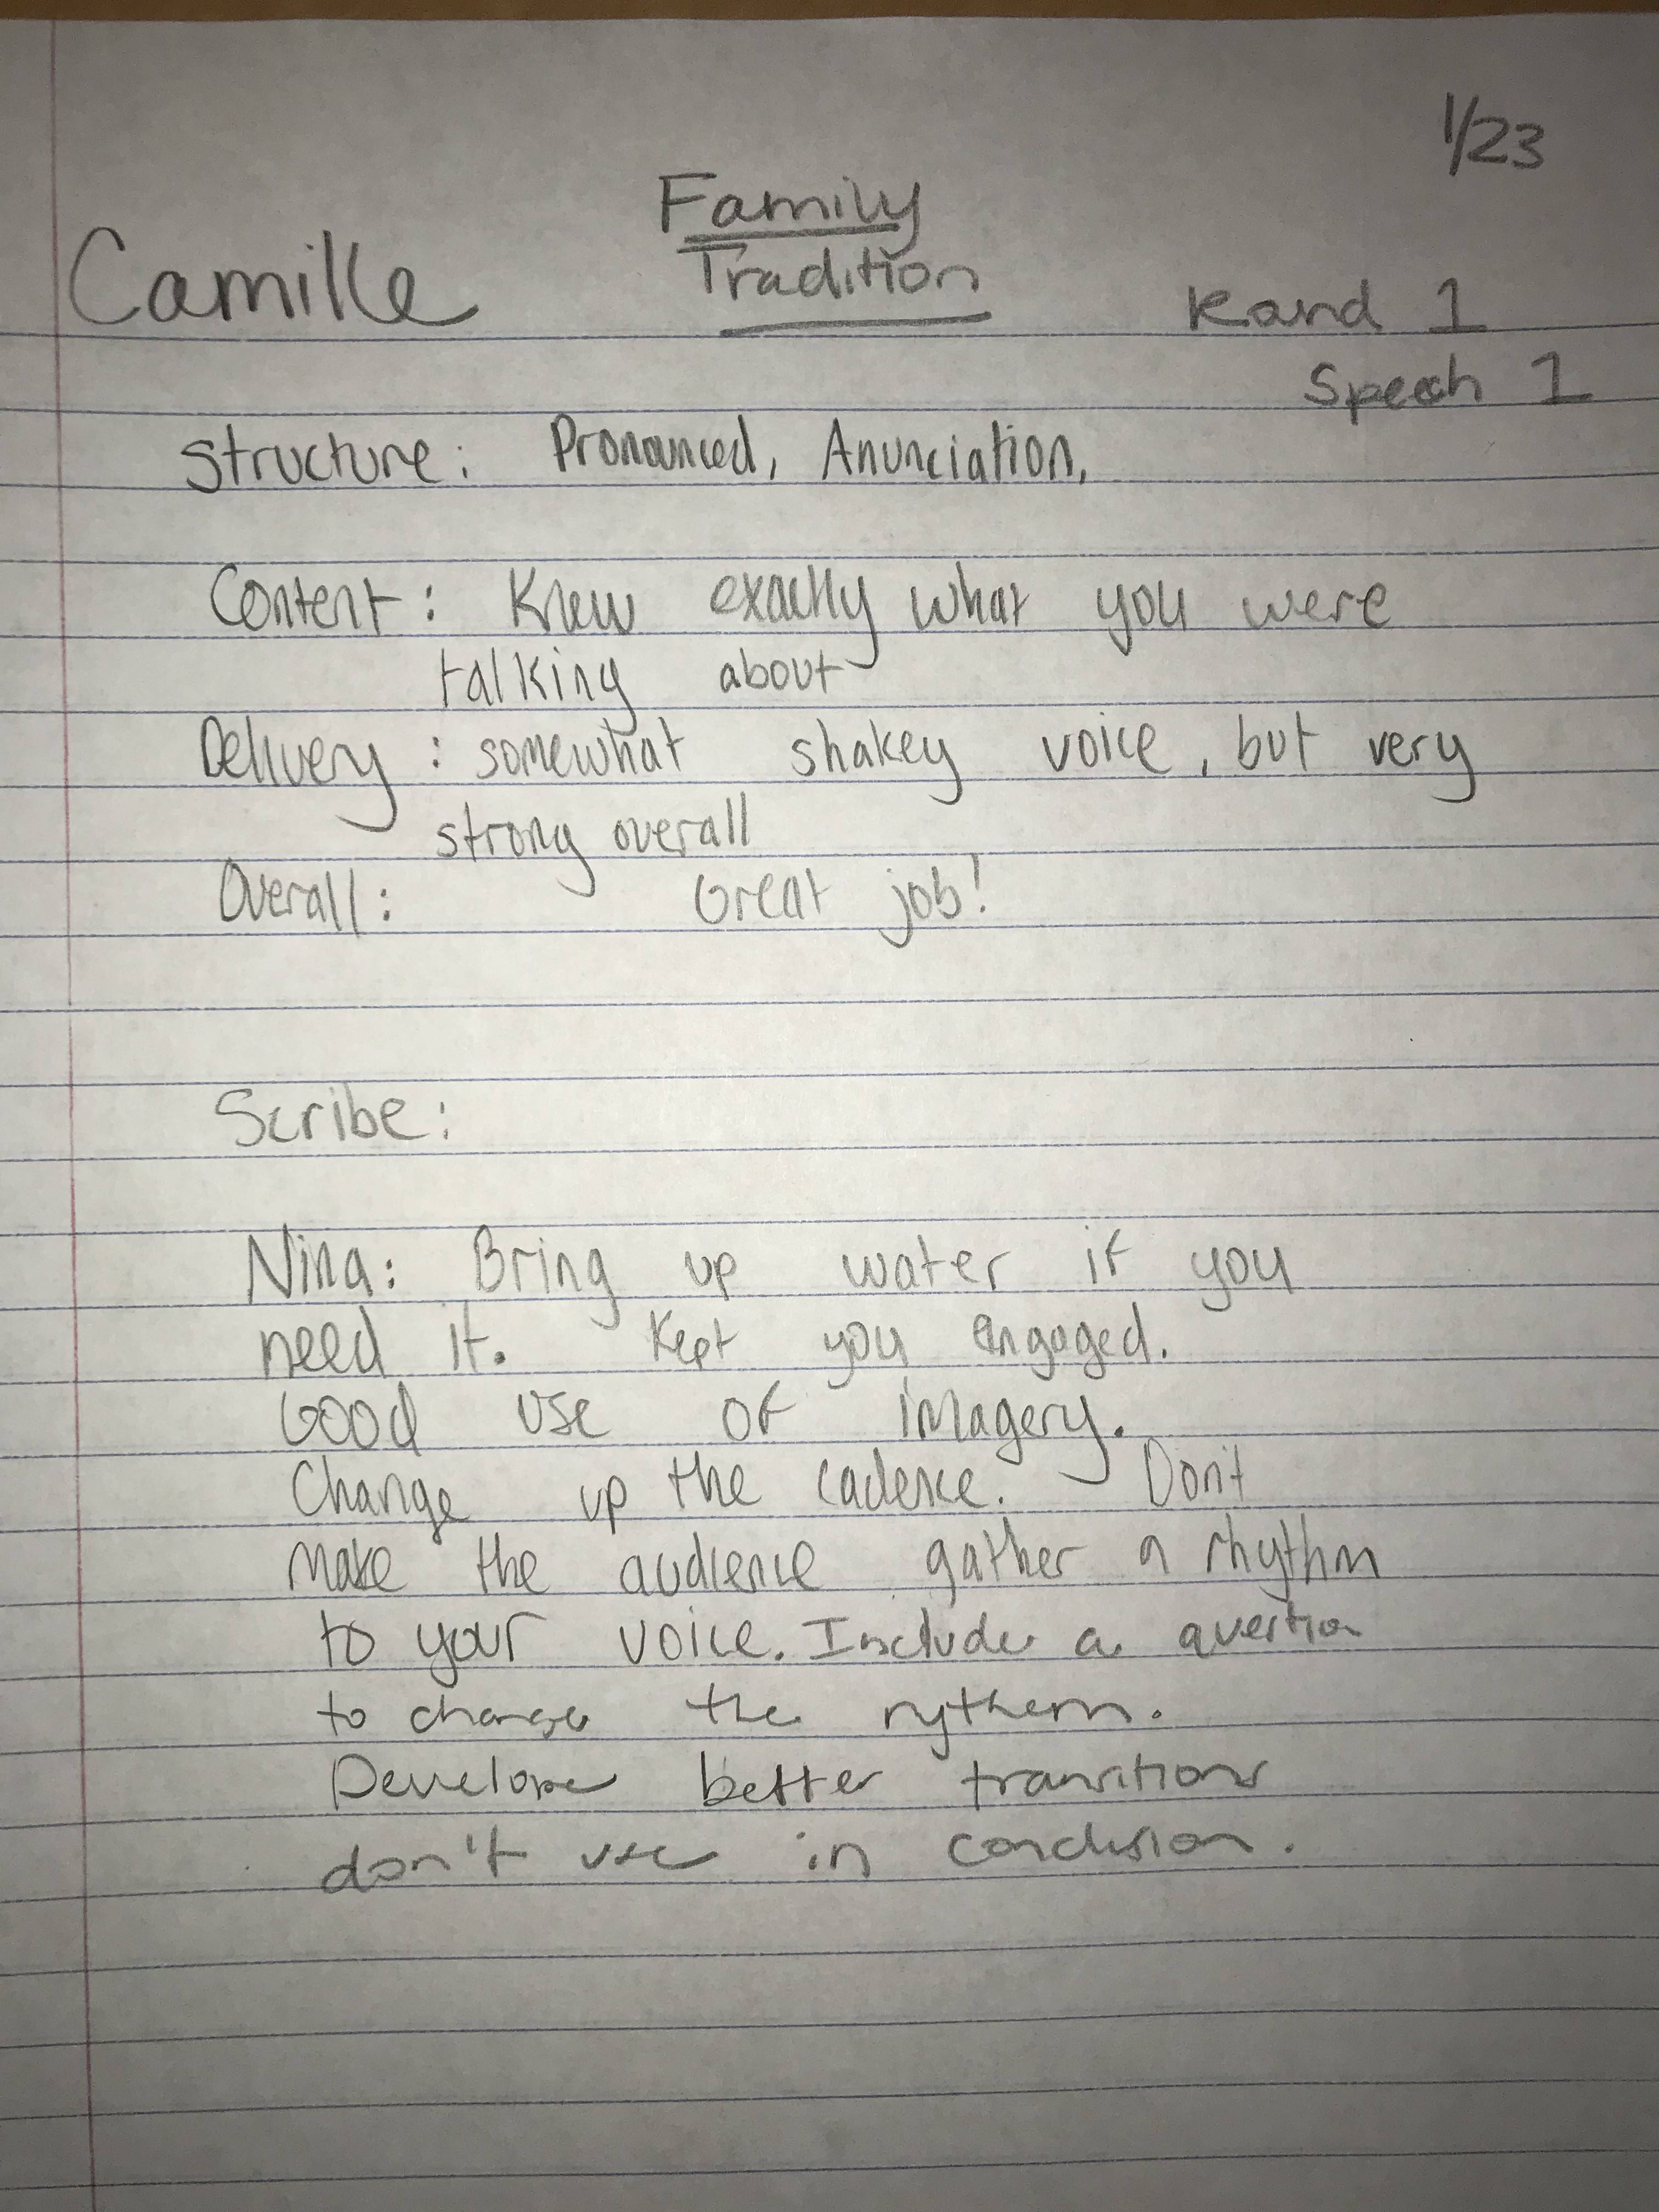 1/23
Family
Tradition
Camille
Rand 1
Speech 1
Structure: Pronounced, Anunciation,
Content: Knew exactly what you were
talking about
Delivery: somewhat shakey voice, but very
strong overall
Overall: Great job!
Scribe:
Nina: Bring up water if you
need it. Kept you engaged.
Good use of imagery.
Change up the cadence. Don't
make the audience gather a rhythm
to your voice. Include a question
to change the rythem.
Develope better transitions
don't use in conclusion.